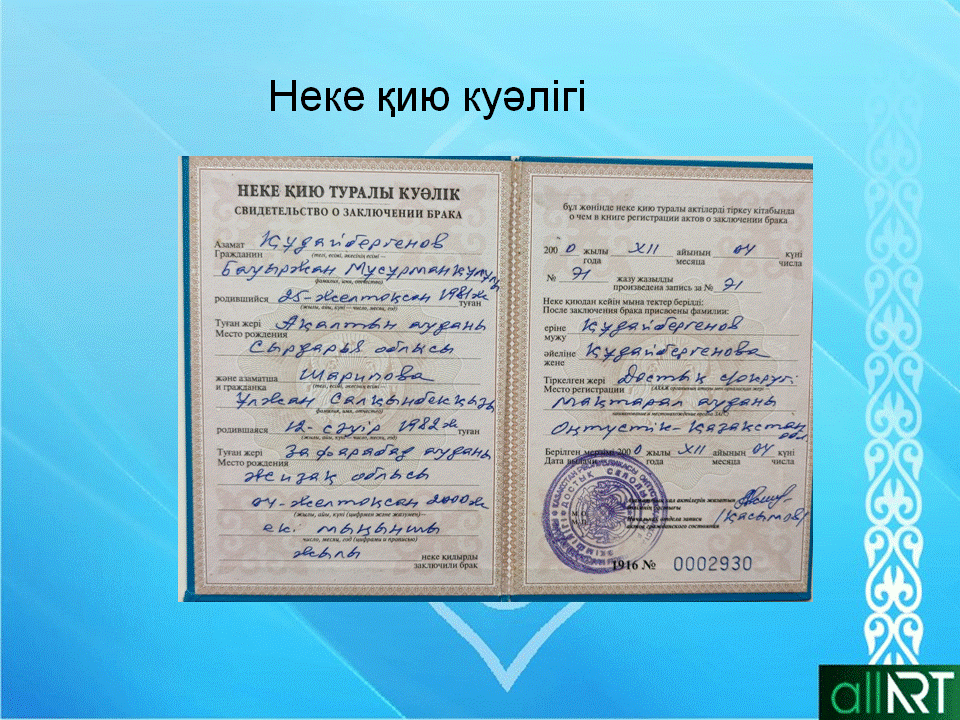 Неке қию куәлігі
НЕКЕ ҚИЮ ТУРАЛЫ КУӘЛІК
СВИДЕТЕЛЬСТВО О ЗАКЛЮЧЕНИИ БРАКА
Азамат Құдайбергенов
Гражданин (тегі, есімі, әкесінің есімі —
Бауыржан Мусурманқұлұлы
фамилия, имя, отчество)
родившийся 25-желтоқсан 1981ж туған
(жылы, айы, күні — число, месяц, год)
Туған жері Ақалтын ауданы
Место рождения
Сырдария облысы
және азаматша Шарипова
и гражданка (тегі, есімі, әкесінің есімі —
Ұлжан Салқынбекқызы
фамилия, имя, отчество)
родившаяся 12-сәуір 1982ж туған
(жылы, айы, күні — число, месяц, год)
Туған жері Зафарабад ауданы
Место рождения
Жизақ облысы
04-желтоқсан 2000ж
(жылы, айы, күні (цифрмен және жазумен)—
екі мыңыншы
число, месяц, год (цифрами и прописью)
жылы неке қидырды
заключили брак
бұл жөнінде неке қию туралы актілерді тіркеу кітабында
о чем в книге регистрации актов о заключении брака
200 0 жылы XII айының 04 күні
года месяца числа
№ 71 жазу жазылды
произведена запись за № 71
Неке қиюдан кейін мына тектер берілді:
После заключения брака присвоены фамилии:
еріне Құдайбергенов
мужу
әйеліне Құдайбергенова
жене
Тіркелген жері Достық с/округі
Место регистрации
Мақтарал ауданы
Оңтүстік-Қазақстан обл
Берілген мерзімі 200 0 жылы XII айының 04 күні
Дата выдачи года месяца числа
/Қасымов/
1916 № 0002930
allART